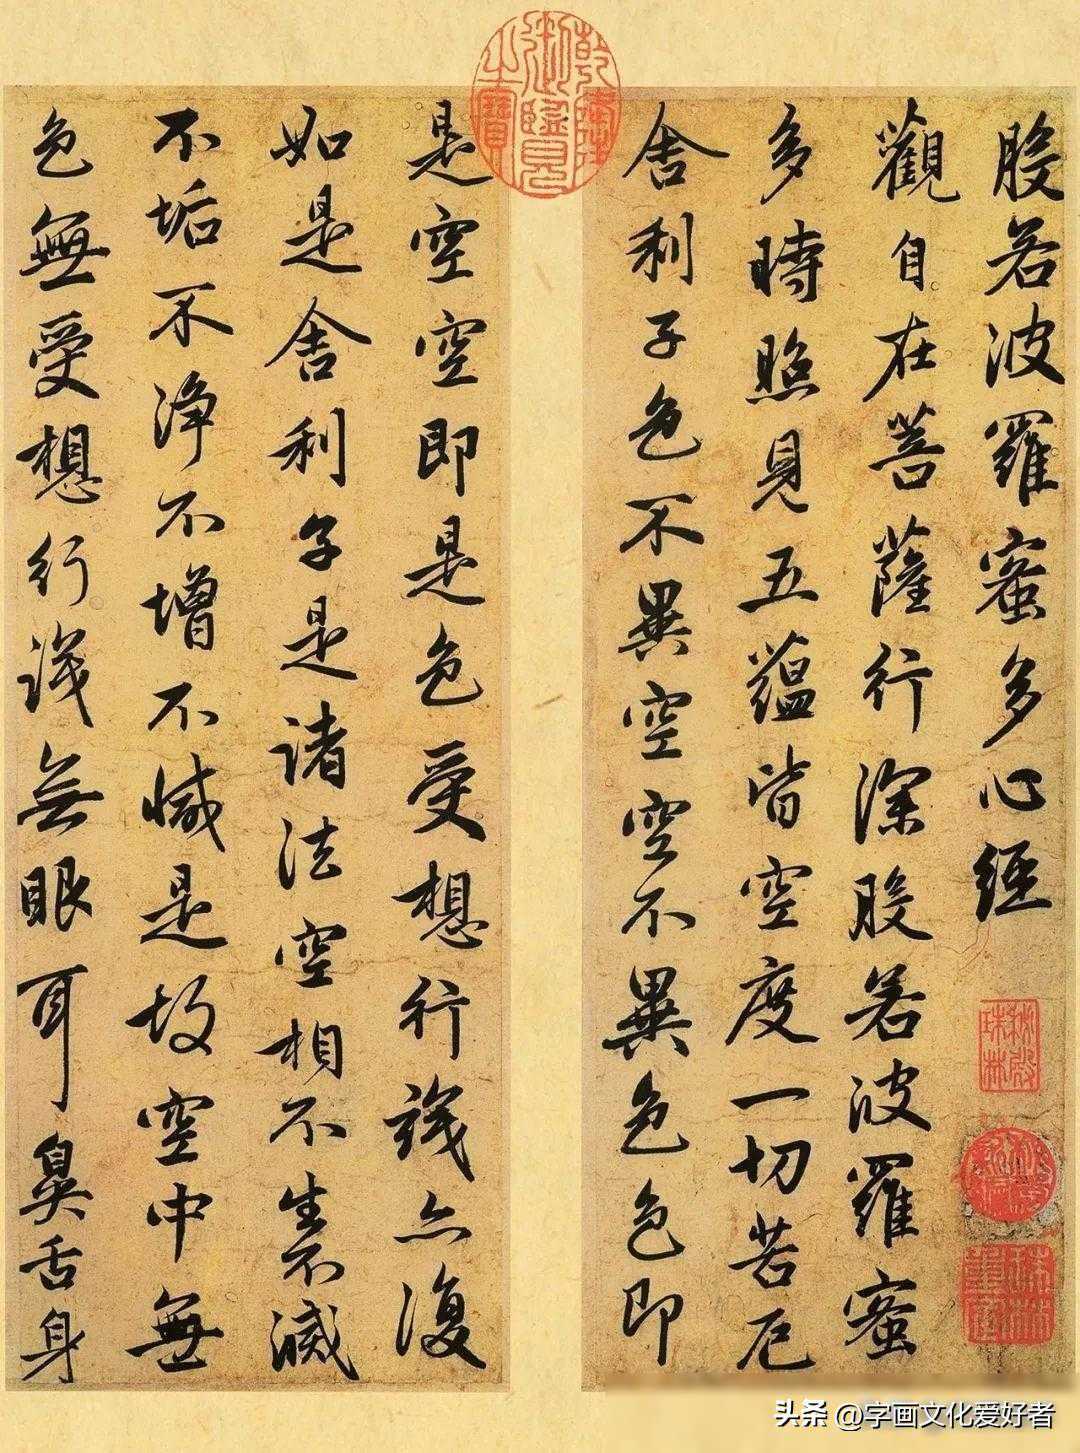 乾隆御覽之寶
般若波羅蜜多心經
秘殿珠林
珠林重定
觀自在菩薩行深般若波羅蜜
多時照見五蘊皆空度一切苦厄
舍利子色不異空空不異色色即
是空空即是色受想行識亦復
如是舍利子是諸法空相不生不滅
不垢不淨不增不減是故空中無
色無受想行識無眼耳鼻舌身
头条 @字画文化爱好者